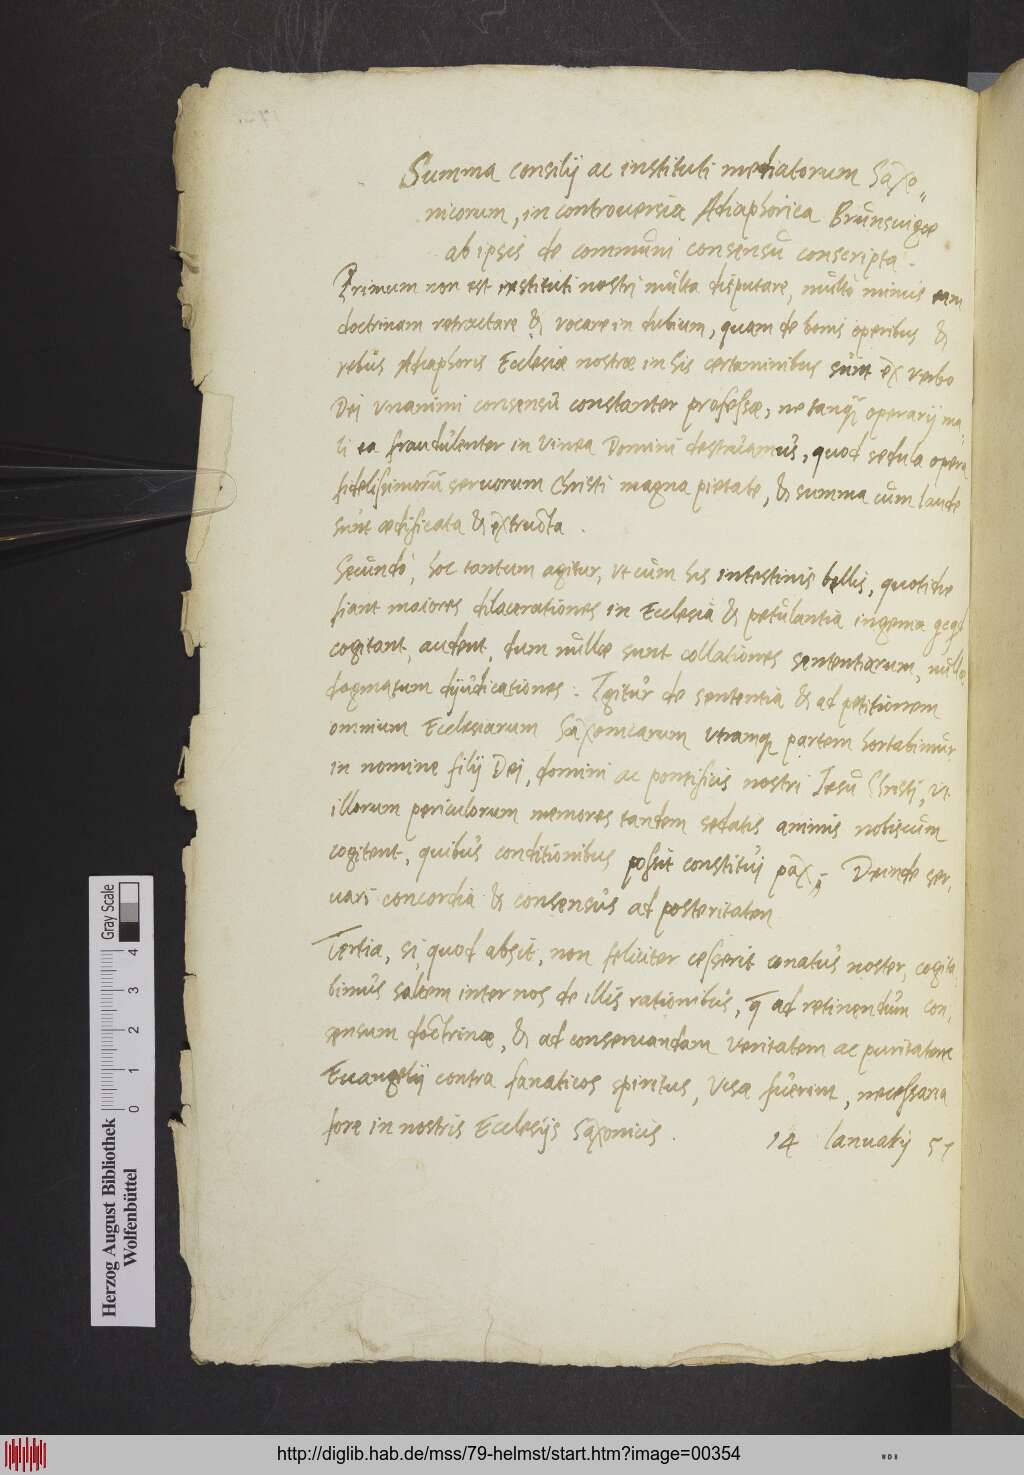 Summa consilij ac instituti mediatorum Saxo„
nicorum, in controuersia Adiaphorica Brunsuigæ
ab ipsis de communi consensu conscripta.
Primum non est instituti nostri multa disputare, multo minus eam
doctrinam retractare & vocare in dubium, quam de bonis operibus &
rebus Adiaphoris Ecclesiæ nostræ in his certaminibus sunt ex verbo
Dei vnanimi consensu constanter professæ, ne tanq operarij ma,
li ea fraudulenter in vinea Domini destruamus, quod sedula opera
fidelissimorū seruorum Christi magna pietate, & summa cum laude
sunt ædificata & extructa.
Secundo, hoc tantum agitur, vt cum his intestinis bellis, quotidie
fiant maiores dilacerationes in Ecclesia & petulantia ingenia
cogitant, audent, dum nullæ sunt collationes sententiarum, nullæ
dogmatum dijudicationes: Igitur de sententia & ad petitionem
omnium Ecclesiarum Saxonicarum vtramq partem hortabimur
in nomine filij Dei, domini ac pontificis nostri Iesu Christi, vt
illorum periculorum memores tandem sedatis animis nobiscum
cogitent, quibus conditionibus possit constitui pax, Deinde ser,
uari concordia & consensus ad posteritatem
Tertia, si, quod absit, non feliciter cesserit conatus noster, cogita,
bimus saltem inter nos de illis rationibus, q ad retinendum con,
sensum doctrinæ, & ad conseruandam veritatem ac puritatem
Euangelij contra fanaticos spiritus, visa fuerint, necessaria
fore in nostris Ecclesijs Saxonicis. 14 Ianuarij 57
Gray Scale
0 1 2 3 4
Herzog August Bibliothek
Wolfenbüttel
http://diglib.hab.de/mss/79-helmst/start.htm?image=00354